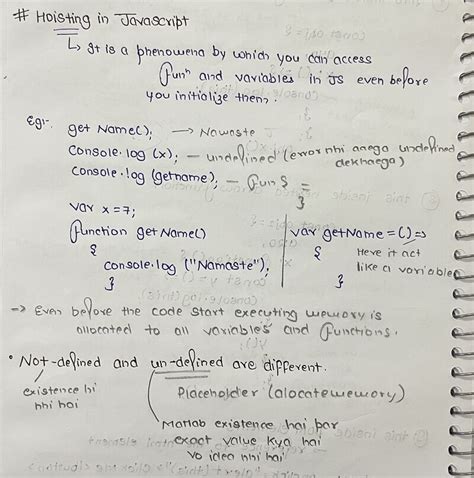 # Hoisting in Javascript
↳ It is a phenomena by which you can access
funⁿ and variables in JS even before
you initialize them.
Eg:- get Name(); → Namaste
Console.log (x); – undefined (error nhi aaega undefined
dekhaega)
Console.log (getname); – fun { = }
var x = 7;
function get Name()
{
console.log ("Namaste");
}
var getName = () =>
{ Here it act
} like a variable
→ Even before the code start executing memory is
allocated to all variables and functions.
• Not-defined and un-defined are different.
existence hi
nhi hai
Placeholder (alocatememory)
Matlab existence hai par
exact value kya hai
vo idea nhi hai